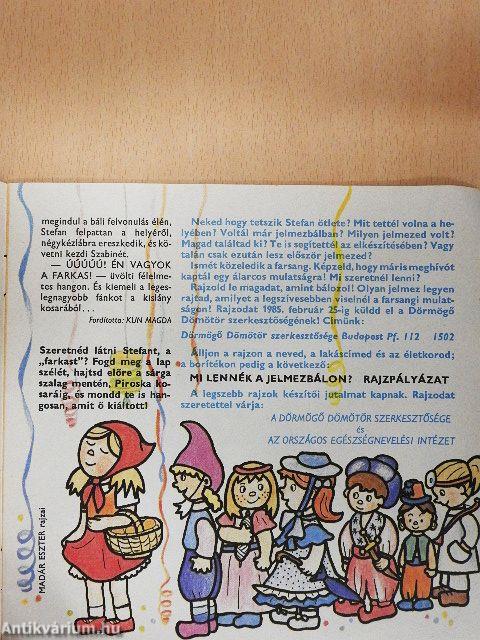 megindul a báli felvonulás élén,
Stefan felpattan a helyéről,
négykézlábra ereszkedik, és kö-
vetni kezdi Szabinét.
— ÚÚÚÚÚ! ÉN VAGYOK
A FARKAS! — üvölti félelme-
tes hangon. És kiemeli a leges-
legnagyobb fánkot a kislány
kosarából...
Fordította: KUN MAGDA
Szeretnéd látni Stefant, a
„farkast"? Fogd meg a lap
szélét, hajtsd előre a sárga
szalag mentén, Piroska ko-
saráig, és mondd te is han-
gosan, amit ő kiáltott!
Neked hogy tetszik Stefan ötlete? Mit tettél volna a he-
lyében? Voltál már jelmezbálban? Milyen jelmezed volt?
Magad találtad ki? Te is segítettél az elkészítésében? Vagy
talán csak ezután lesz először jelmezed?
Ismét közeledik a farsang. Képzeld, hogy máris meghívót
kaptál egy álarcos mulatságra! Mi szeretnél lenni?
Rajzold le magadat, amint bálozol! Olyan jelmez legyen
rajtad, amilyet a legszívesebben viselnél a farsangi mulat-
ságon! Rajzodat 1985. február 25-ig küldd el a Dörmögő
Dömötör szerkesztőségének! Címünk:
Dörmögő Dömötör szerkesztősége Budapest Pf. 112 1502
Álljon a rajzon a neved, a lakáscímed és az életkorod;
a borítékon pedig a következő:
MI LENNÉK A JELMEZBÁLON? RAJZPÁLYÁZAT
A legszebb rajzok készítői jutalmat kapnak. Rajzodat
szeretettel várja:
A DÖRMÖGŐ DÖMÖTÖR SZERKESZTŐSÉGE
és
AZ ORSZÁGOS EGÉSZSÉGNEVELÉSI INTÉZET
MADÁR ESZTER rajzai
Antikvárium.hu